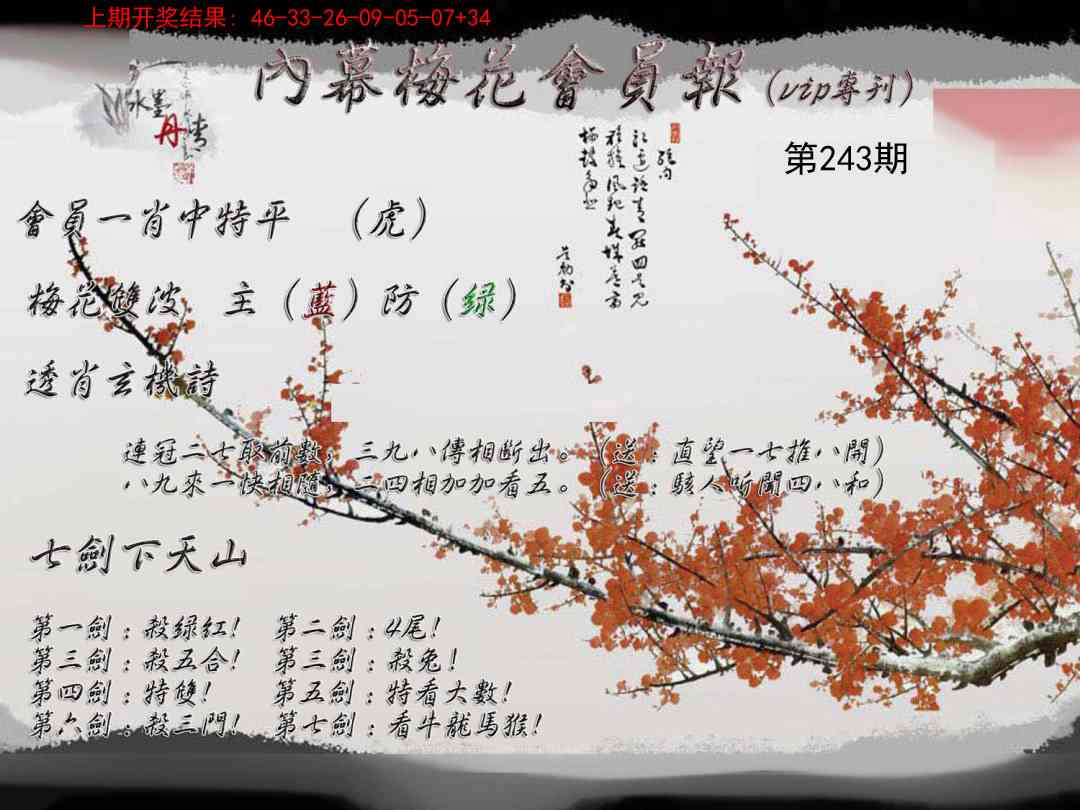 上期开奖结果: 46-33-26-09-05-07+34
內幕梅花會員報(vip專刊)
水墨
丹青
第243期
會員一肖中特平 (虎)
梅花雙波 主(藍)防(绿)
透肖玄機詩
連冠二七取前數，三九八傳相斷出。(送:直望一七推八開)
八九來一快相隨，二四相加加看五。(送:駭人听聞四八和)
七劍下天山
第一劍:殺绿紅! 第二劍:4尾!
第三劍:殺五合! 第三劍:殺兔!
第四劍:特雙! 第五劍:特看大數!
第六劍:殺三門! 第七劍:看牛龍馬猴!